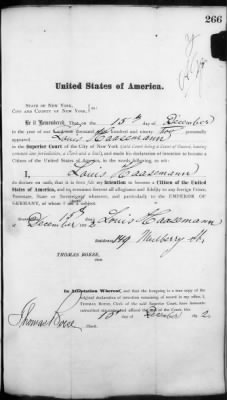 266
United States of America.
STATE OF NEW YORK,
CITY AND COUNTY OF NEW YORK, } ss:
Be it Remembered, That on the 15th day of December
in the year of our Lord one thousand eight hundred and ninety two personally
appeared Louis Haasemann
in the Superior Court of the City of New York (said Court being a Court of Record, having
common law jurisdiction, a Clerk and a Seal), and made his declaration of intention to become a
Citizen of the United States of America, in the words following, to wit:
I, Louis Haasemann
do declare on oath, that it is bona fide my Intention to become a Citizen of the United
States of America, and to renounce forever all allegiance and fidelity to any foreign Prince,
Potentate, State or Sovereignty whatever, and particularly to the EMPEROR OF
GERMANY, of whom I am a subject.
15th
December 2 Louis Haasemann
Residence, Mulberry St.
THOMAS BOESE,
Clerk.
In Attestation Whereof, and that the foregoing is a true copy of the
original declaration of intention remaining of record in my office, I
Thomas Boese, Clerk of the said Superior Court, have hereunto
subscribed my name and affixed the seal of the Court, this
15 day of December 2
Thomas Boese
Clerk.